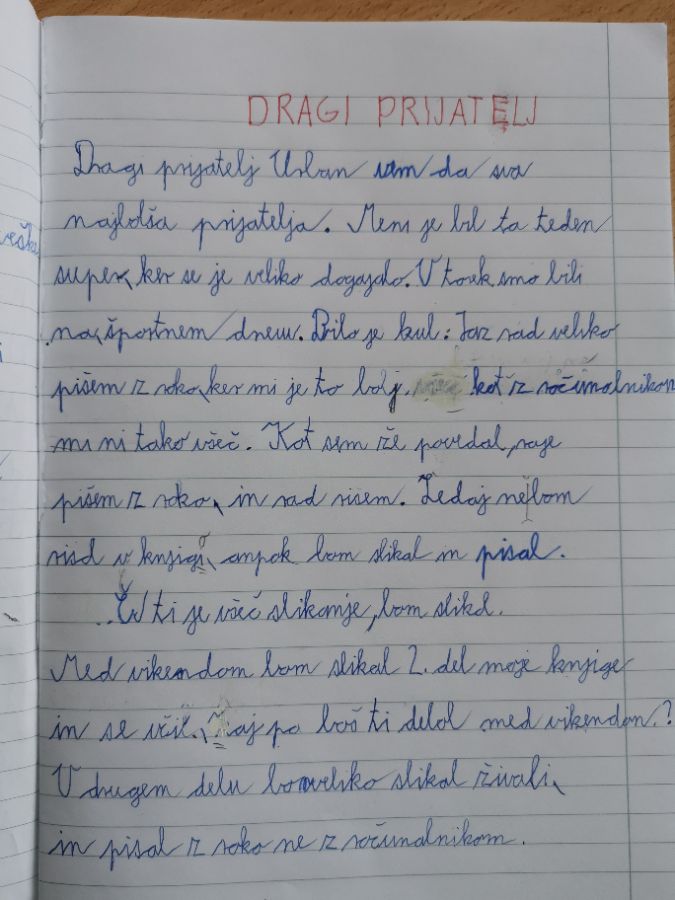 DRAGI PRIJATELJ
Dragi prijatelj Urban vem da sva
najbolša prijatelja. Meni je bil ta teden
super, ker se je veliko dogajalo. V torek smo bili
na športnem dnevu. Bilo je kul. Jaz rad veliko
pišem z roko, ker mi je to bolj kot z računalnikom
mi ni tako všeč. Kot sem že povedal, raje
pišem z roko, in rad risem. Zedaj nebom
risal v knjigi, ampak bom slikal in pisal.
ti je všeč slikanje, bom slikal.
Med vikendom bom slikal 2. del moje knjige
in se učil. Kaj pa boš ti delal med vikendom.?
V drugem delu bom veliko slikal živali,
in pisal z roko ne z računalnikom.